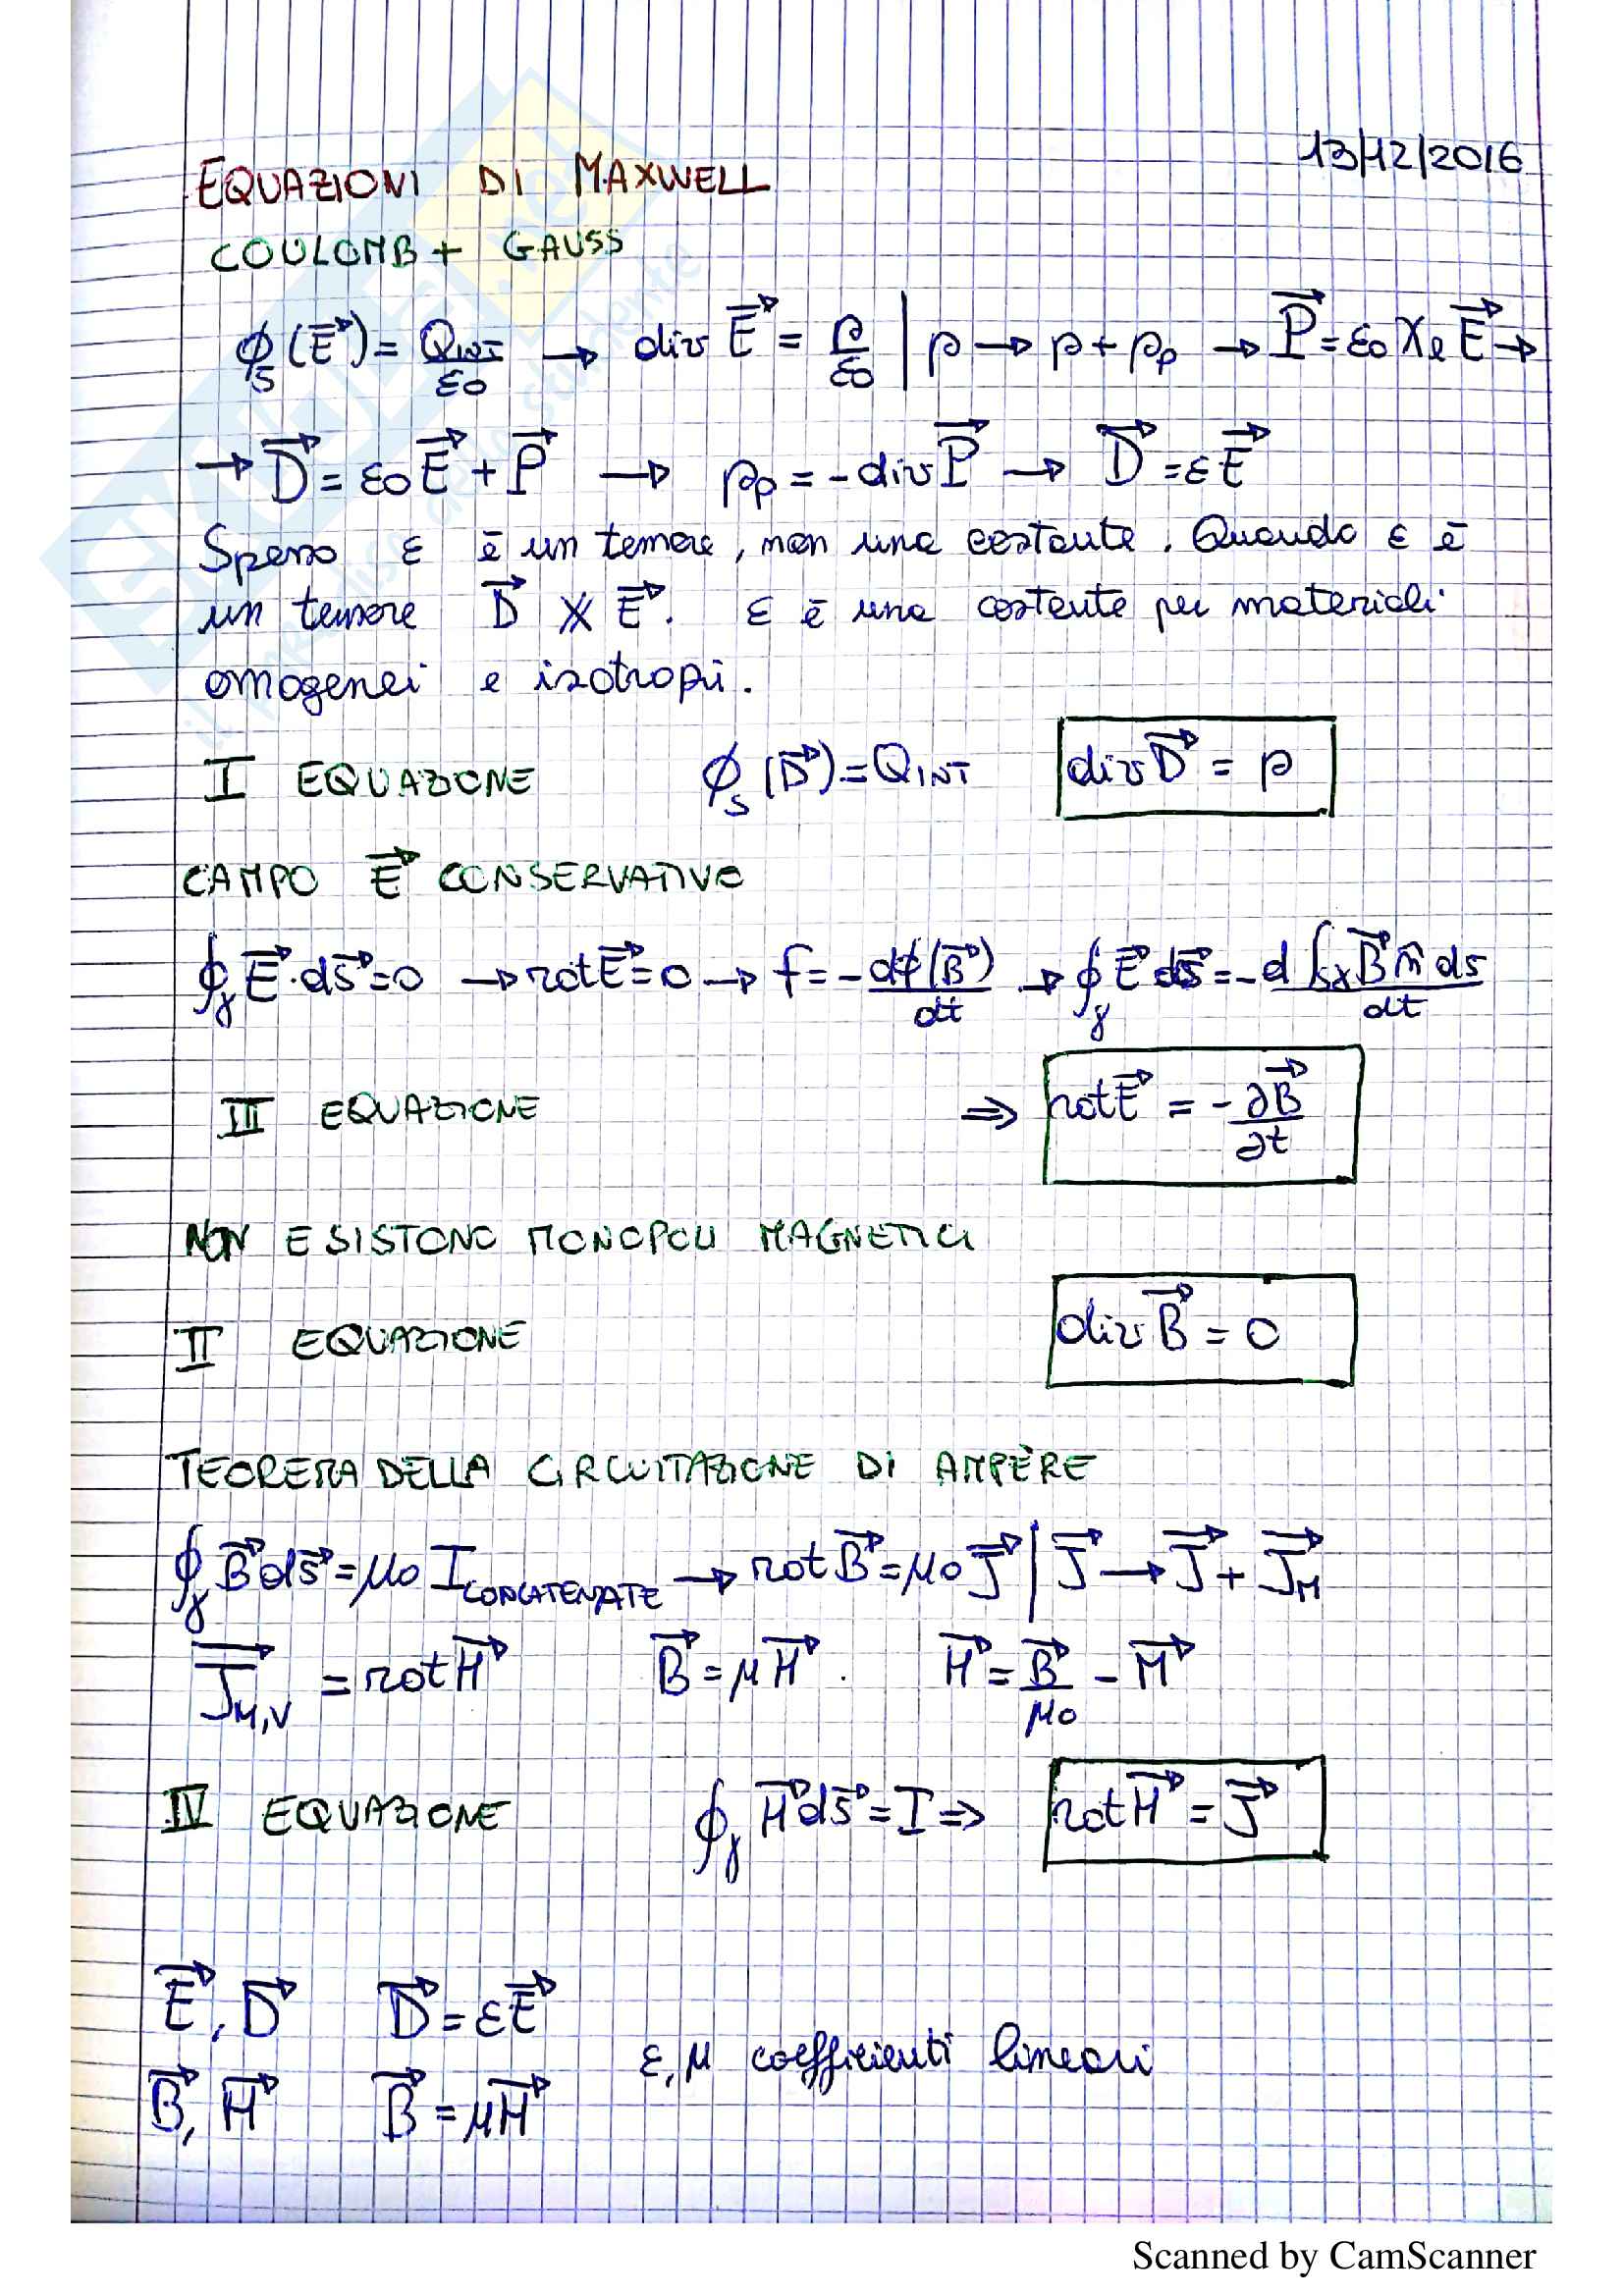 13/12/2016
EQUAZIONI DI MAXWELL
COULOMB + GAUSS
ϕ_S (E⃗) = Q_INT/ε0 → div E⃗ = ρ/ε0 | ρ → ρ + ρ_p → P⃗ = ε0 χe E⃗ →
→ D⃗ = ε0 E⃗ + P⃗ → ρ_p = - div P⃗ → D⃗ = εE⃗
Spesso ε è un tensore, non una costante. Quando ε è
un tensore D⃗ ∦ E⃗. ε è una costante per materiali
omogenei e isotropi.
I EQUAZIONE ϕ_S (D⃗) = Q_INT div D⃗ = ρ
CAMPO E⃗ CONSERVATIVO
∮_γ E⃗ · ds⃗ = 0 → rot E⃗ = 0 → f = - dϕ(B⃗)/dt → ∮_γ E⃗ ds⃗ = - d ∫_Sγ B⃗ n̂ ds/dt
III EQUAZIONE ⇒ rot E⃗ = - ∂B⃗/∂t
NON ESISTONO MONOPOLI MAGNETICI
II EQUAZIONE div B⃗ = 0
TEOREMA DELLA CIRCUITAZIONE DI AMPÈRE
∮_γ B⃗ ds⃗ = μ0 I_CONCATENATE → rot B⃗ = μ0 J⃗ | J⃗ → J⃗ + J⃗_M
J⃗_M,V = rot H⃗ B⃗ = μH⃗. H⃗ = B⃗/μ0 - M⃗
IV EQUAZIONE ∮_γ H⃗ ds⃗ = I ⇒ rot H⃗ = J⃗
E⃗, D⃗ D⃗ = εE⃗
ε, μ coefficienti lineari
B⃗, H⃗ B⃗ = μH⃗
Scanned by CamScanner